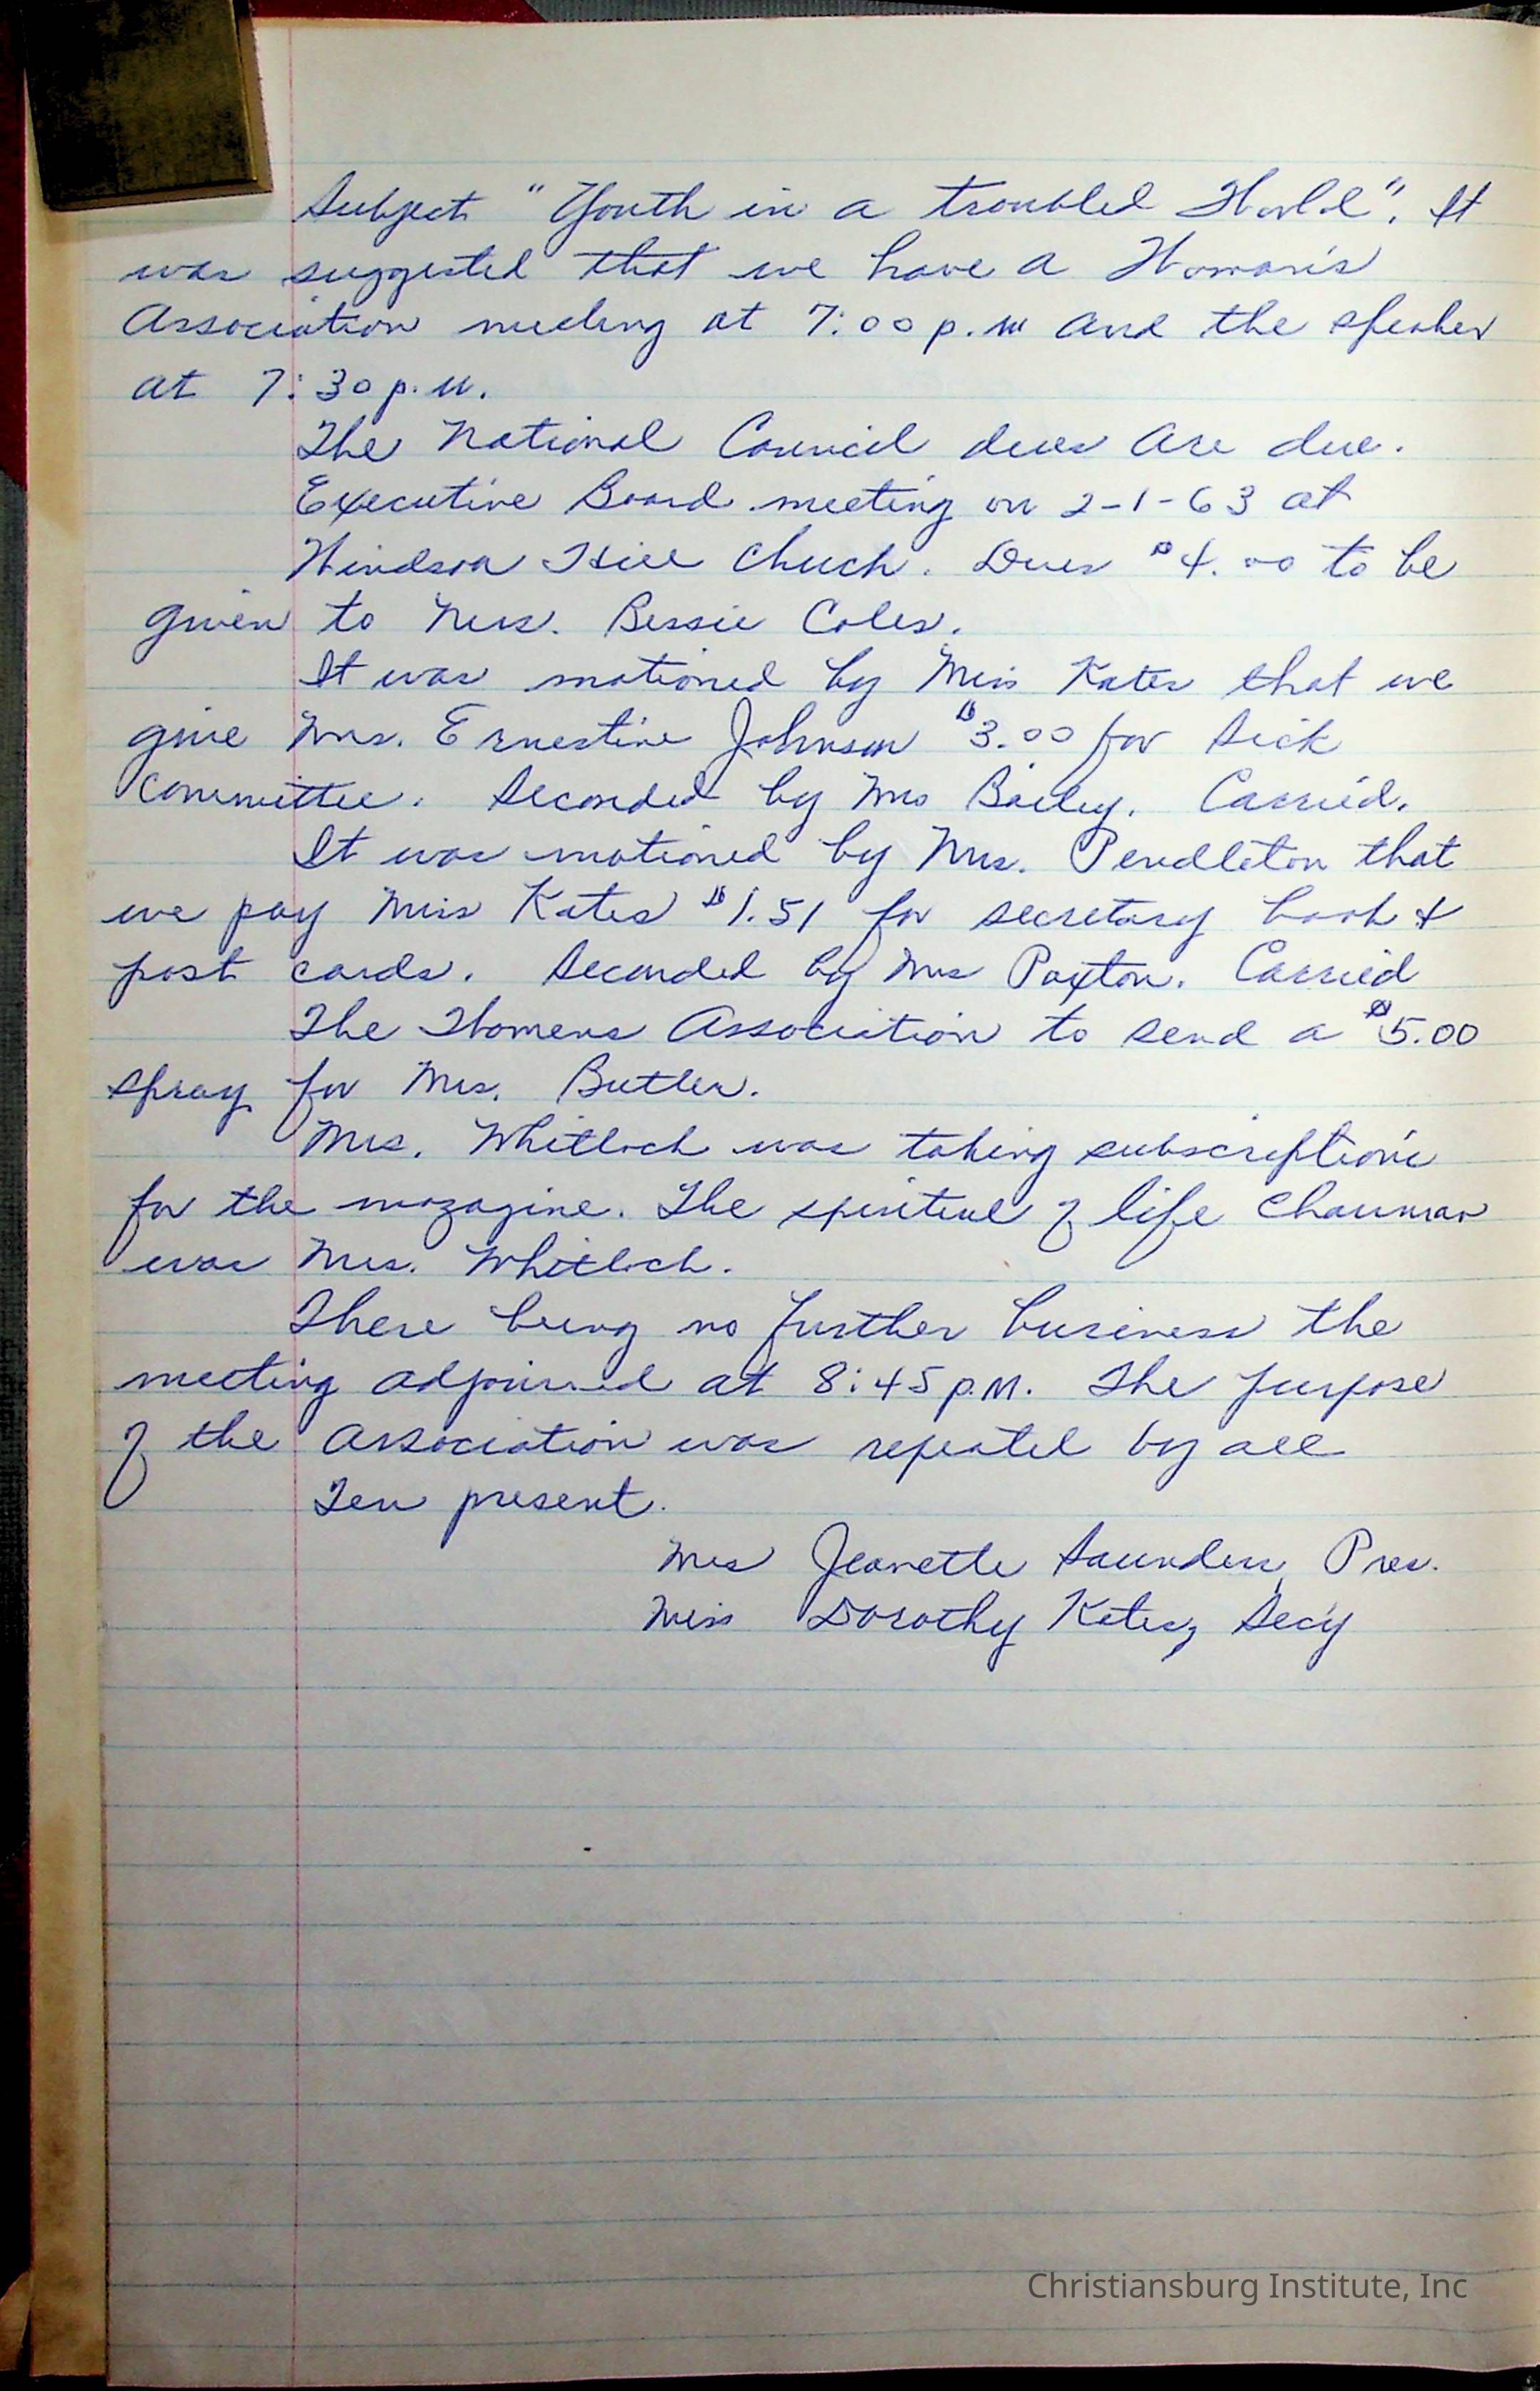 Subject "Youth in a troubled World". It
was suggested that we have a Woman's
Association meeting at 7:00 p.m and the speaker
at 7:30 p.m.
The National Council dues are due.
Executive Board meeting on 2-1-63 at
Windsor Hill Chuch. Dues $4.00 to be
given to Mrs. Bessie Coles.
It was motioned by Miss Kates that we
give Mrs. Ernestine Johnson $3.00 for Sick
Committee. Seconded by Mrs Bailey. Carried.
It was motioned by Mrs. Pendleton that
we pay Miss Kates $1.51 for secretary book &
post cards. Seconded by Mrs Paxton. Carried
The Womens Association to send a $5.00
spray for Mrs. Butler.
Mrs. Whitlock was taking subscriptions
for the magazine. The spiritual of life Chairman
was Mrs. Whitlock.
There being no further business the
meeting adjourned at 8:45 p.m. The purpose
of the Association was repeated by all
Ten present.
Mrs Jeanette Saunders, Pres.
Miss Dorothy Kates, Sec'y
Christiansburg Institute, Inc